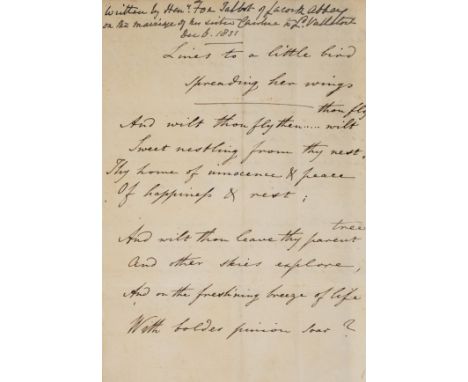 Written by Hen.y Fox Talbot of Lacock Abbey
on the marriage of his sister Caroline to Ld. Valletort
Dec 6. 1831
Lines to a little bird
spreading her wings
thou fly
And wilt thou fly then..... wilt
Sweet nestling from thy nest,
Thy home of innocence & peace
Of happiness & rest;
tree
And wilt thou leave thy parent
And other skies explore,
And on the freshining breeze of life
With bolder pinion soar?